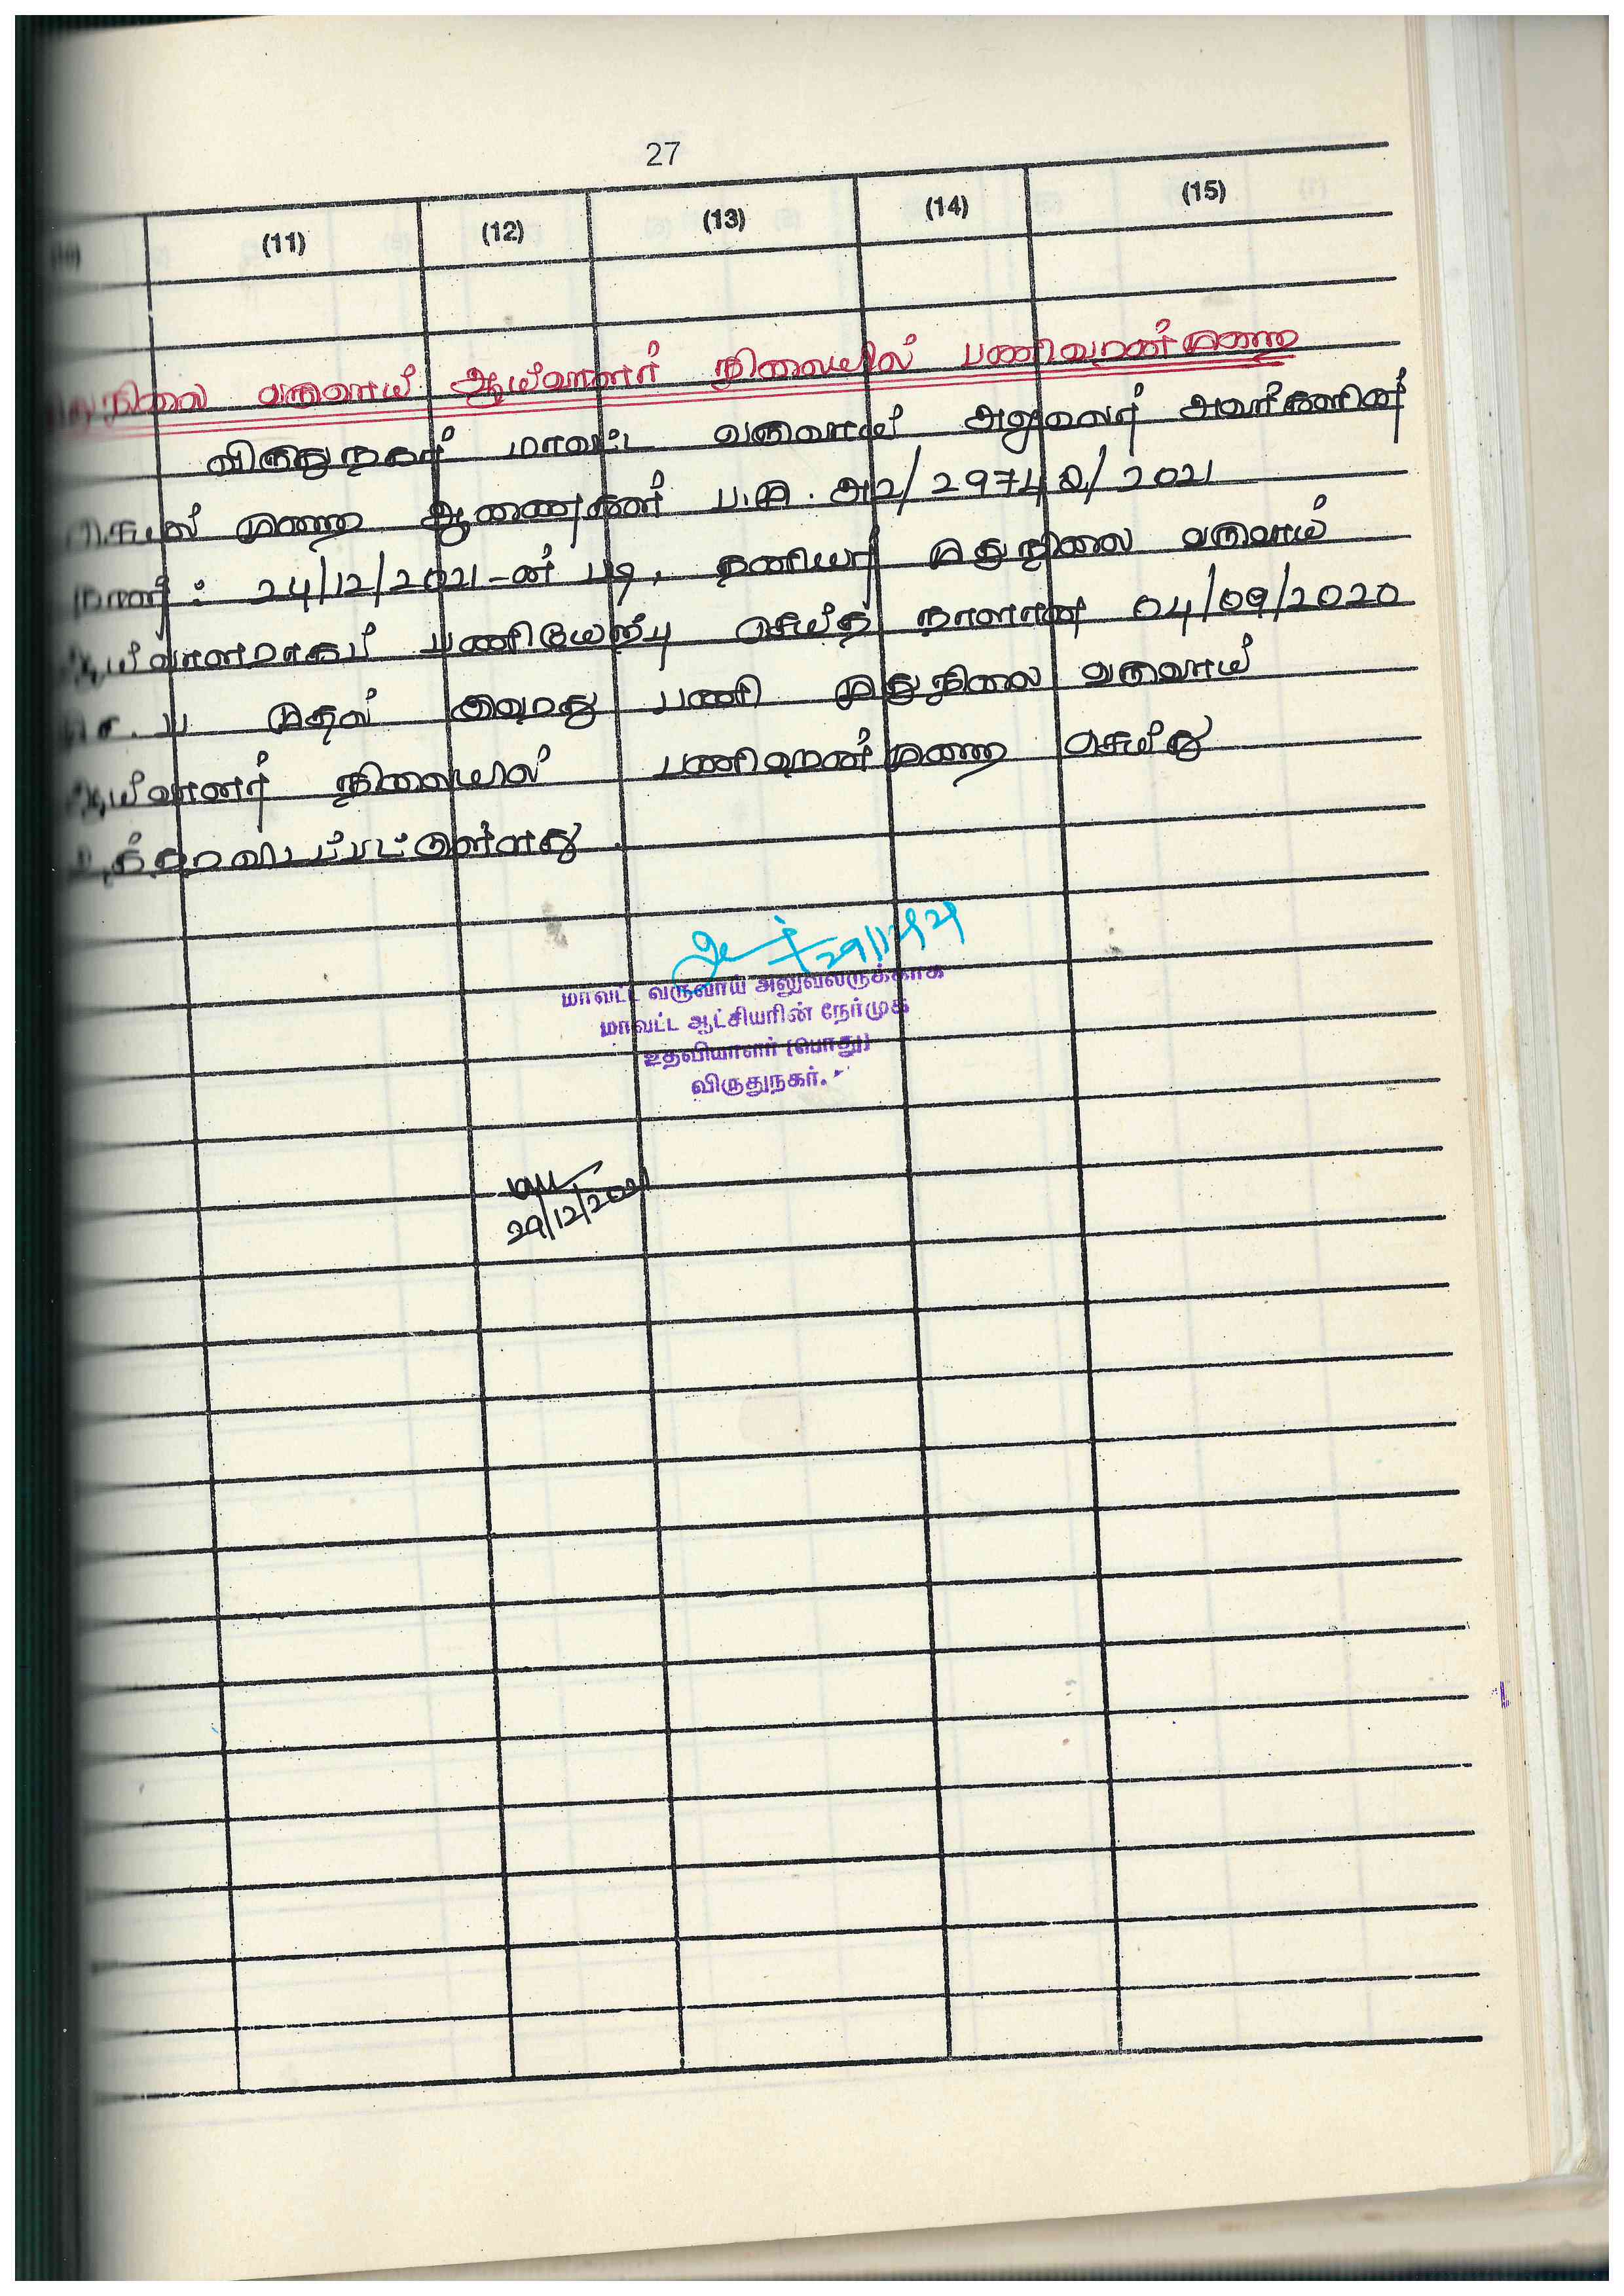 27
(10) (11) (12) (13) (14) (15)
முதுநிலை வருவாய் ஆய்வாளர் நிலையில் பணிவரன்முறை
விருதுநகர் மாவட்ட வருவாய் அலுவலர் அவர்களின்
செயல் முறை ஆணைகள் ப.மு. அ2/29742/2021
நாள் : 24/12/2021-ன் படி, தணியர் முதுநிலை வருவாய்
ஆய்வாளராகப் பணியேற்பு செய்த நாளான 04/09/2020
மு.ப முதல் இவரது பணி முதுநிலை வருவாய்
ஆய்வாளர் நிலையில் பணிவரன்முறை செய்து
உத்தரவிடப்பட்டுள்ளது.
29/12/21
மாவட்ட வருவாய் அலுவலருக்காக
மாவட்ட ஆட்சியரின் நேர்முக
உதவியாளர் (பொது)
விருதுநகர்.
29/12/2021